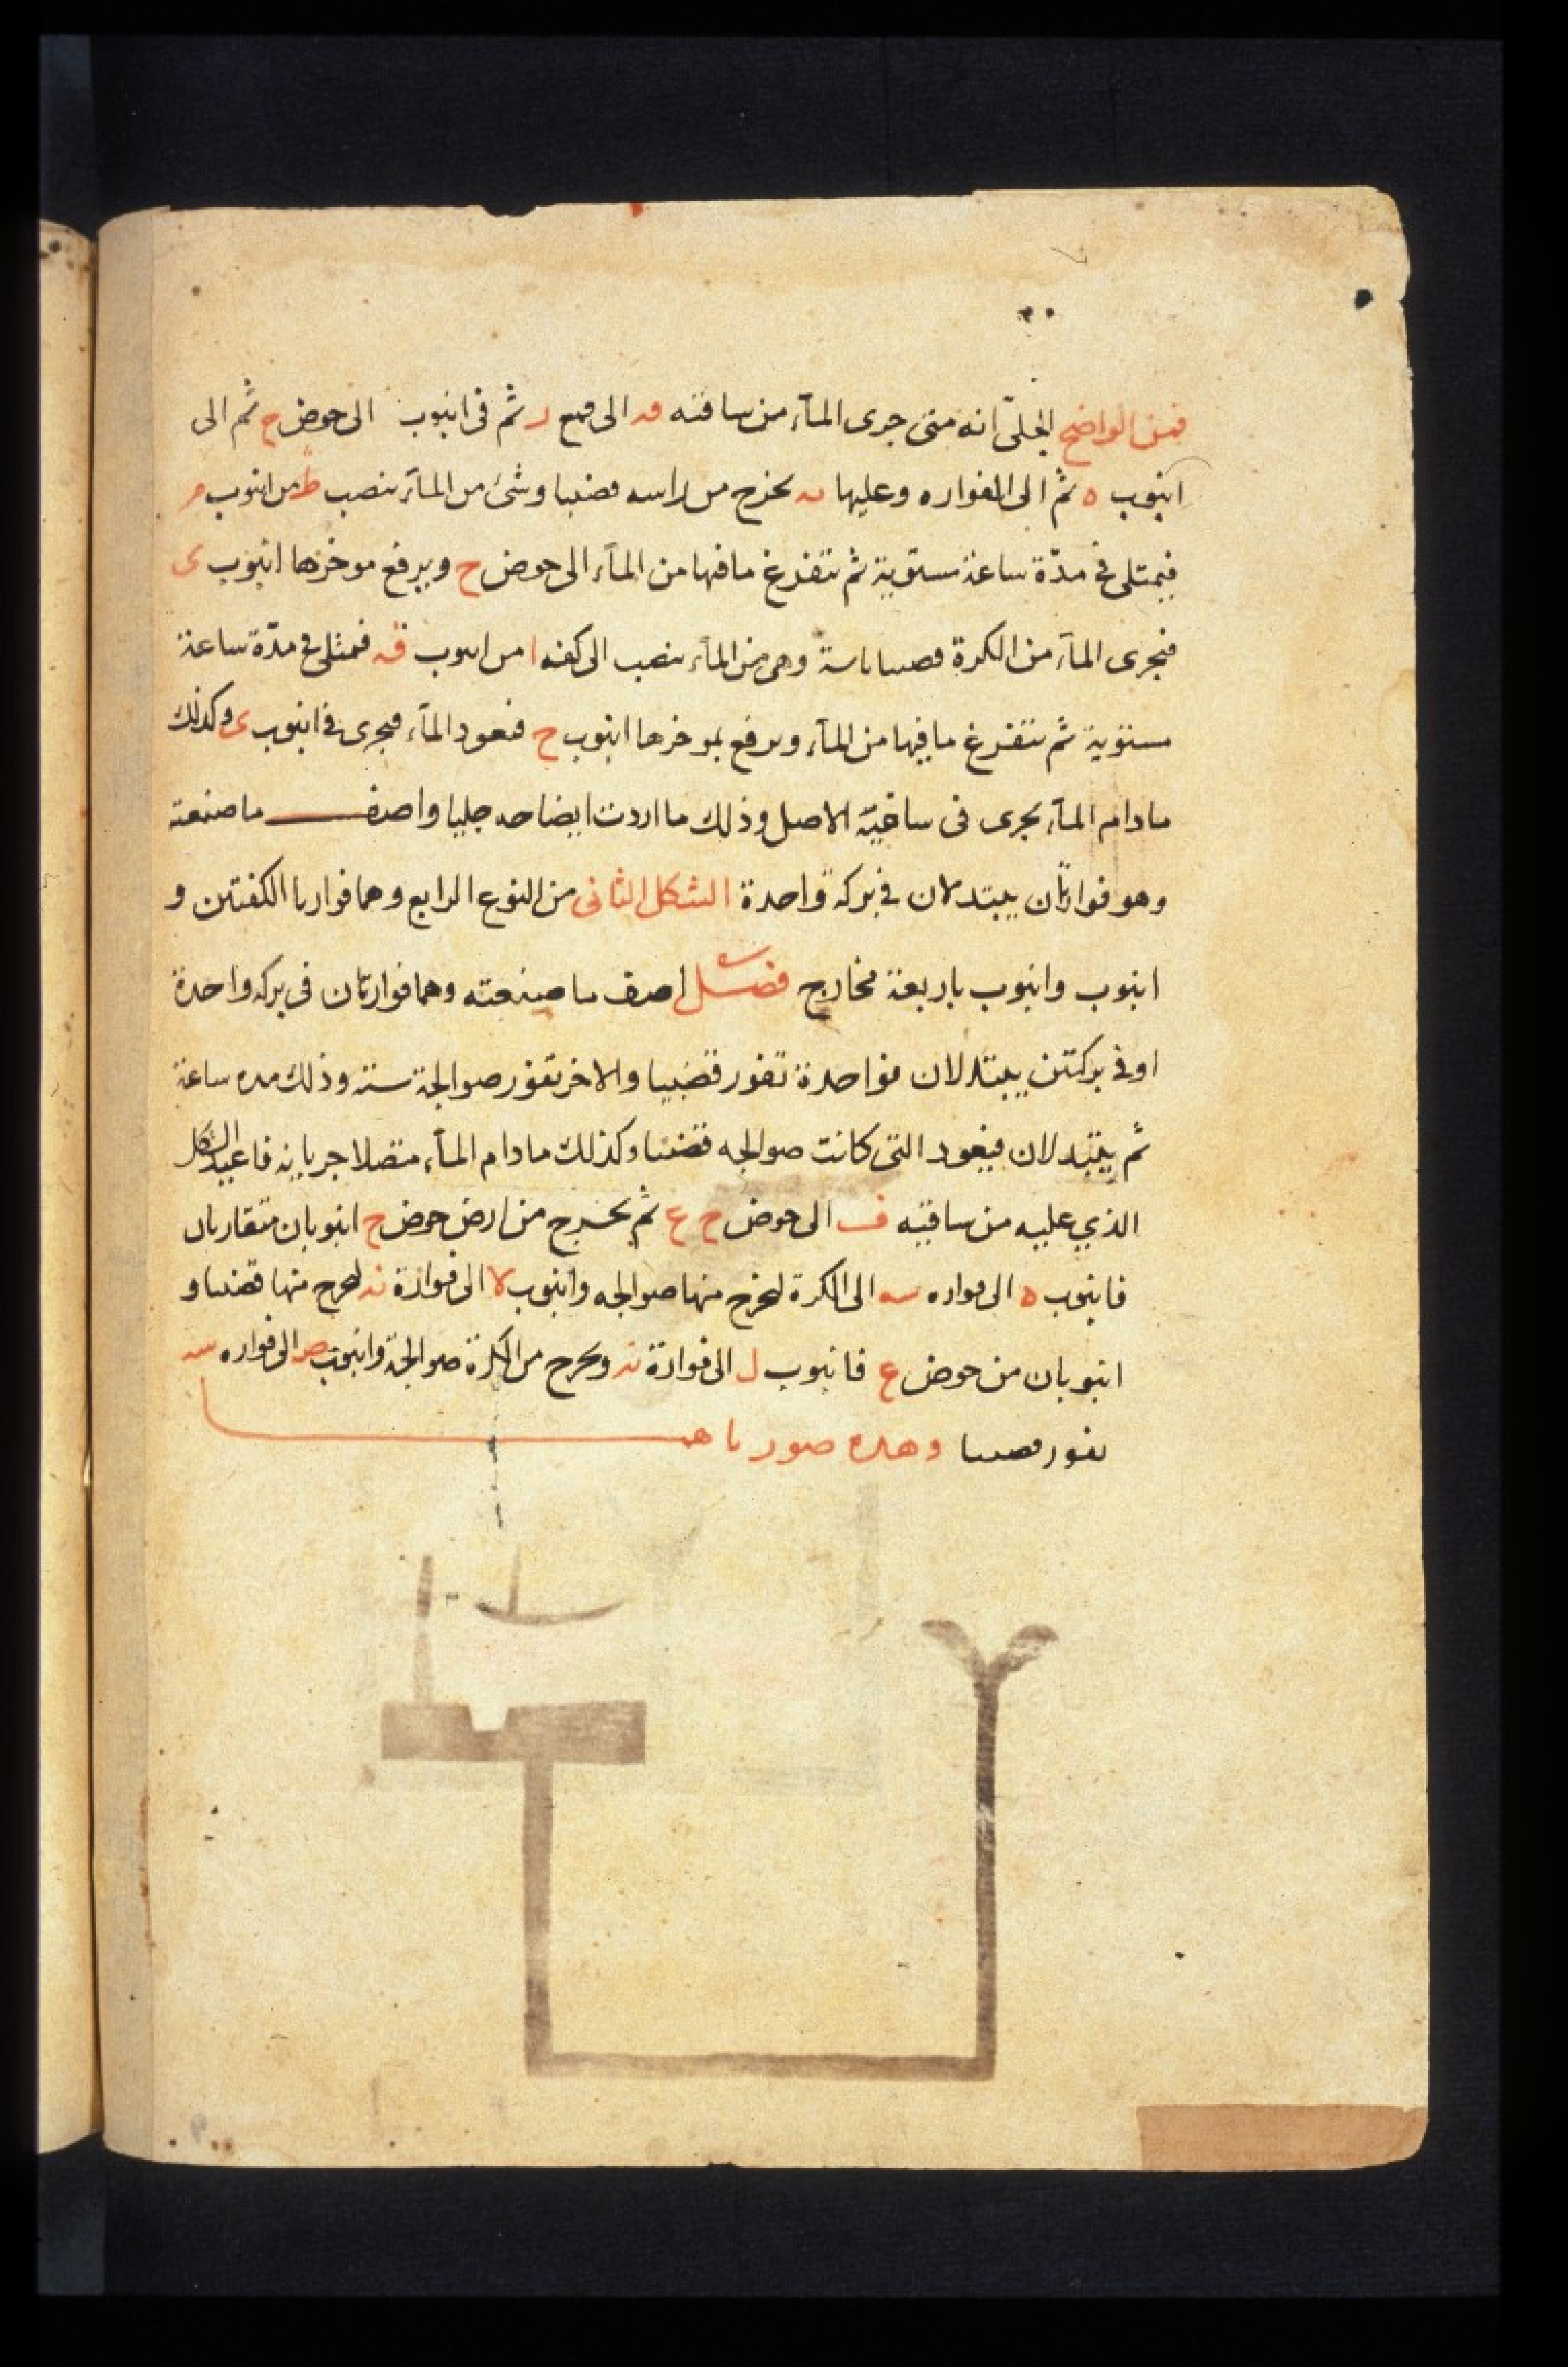 فمن الواضح الجلىّ انه متى جرى المآء من ساقته فه الى قمع ر ثم فى انبوب الى حوض ح ثم الى
انبوب ه ثم الى الفواره وعليها ںه يخرج من راسه قضيبا وشئ من المآء ينصب ط من انبوب م
فيمتلى فى مدّة ساعة مستوية ثم تتفرغ ما فيها من المآء الى حوض ح ويرفع موخرها انبوب ى
فيجرى المآء من الكرة من المآء ينصب الى كفه ا من انبوب ق فيمتلى فى مدّة ساعة
مستوية ثم تتفرغ ما فيها من المآء ويرفع بموخرها انبوب ح فيعود المآء فيجرى فى انبوب ى وكذلك
ما دام المآء يجرى فى ساقية الاصل وذلك ما اردت ايضاحه جليا واصف ما صنعته
وهو فوارتان يبتدلان فى بركة واحدة الشكل الثانى من النوع الرابع وهما فوارتا الكفتين و
انبوب وانبوب باربعة مخارج فصل اصف ما صنعته وهما فوارتان فى بركه واحدة
او فى بركتين يبتدلان فواحدة تفور قضيبا والاخر تفور صوالجة ستة وذلك مده ساعة
ثم يبتدلان فيعود التى كانت صوالجه قضيبا وكذلك ما دام المآء متصلا جريانه فاعيد الشكل
الذي عليه من ساقيه ف الى حوض ح ع ثم يخرج من ارض حوض ح انبوبان متقاربان
فانبوب ه الى فواره سه الى الكرة ليخرج منها صوالجه وانبوب لا الى فوارة ںه ليخرج منها قضيبا و
انبوبان من حوض ع فانبوب ل الى فوارة ںه ويخرج من الكرة صوالجة وانبوب ص الى فواره سه
يفور قضيبا وهذه صورتاهما